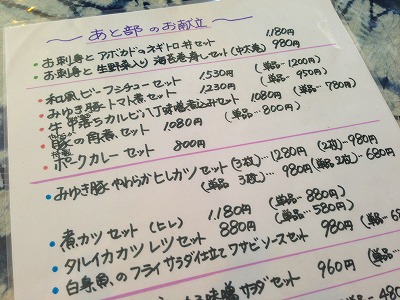 ～ あと部のお献立 ～
• お刺身と アボカドのネギトロ丼セット 1,180円
• お刺身と 生野菜入り 海苔巻寿しセット (中太巻) 980円
• 和風ビーフシチューセット 1530円 (単品…1200円)
• みゆき豚トマト煮セット 1230円 (単品… 950円)
• 牛 カルビ八丁味噌煮込みセット 1080円 (単品… 780円)
• 豚の角煮セット 1080円 (単品… 800円)
• ポークカレーセット 800円
• みゆき豚やわらかヒレカツセット (3枚)…1280円 (2枚)…980円
(単品 3枚… 980円) (単品2枚)…680円
• 煮カツセット (ヒレ) 1,180円 (単品… 880円)
• タルイカカツレツセット 880円 (単品… 580円)
• 白身魚のフライサラダ仕立てワサビソースセット 980円 (単品
味噌サラダセット 960円 (単品